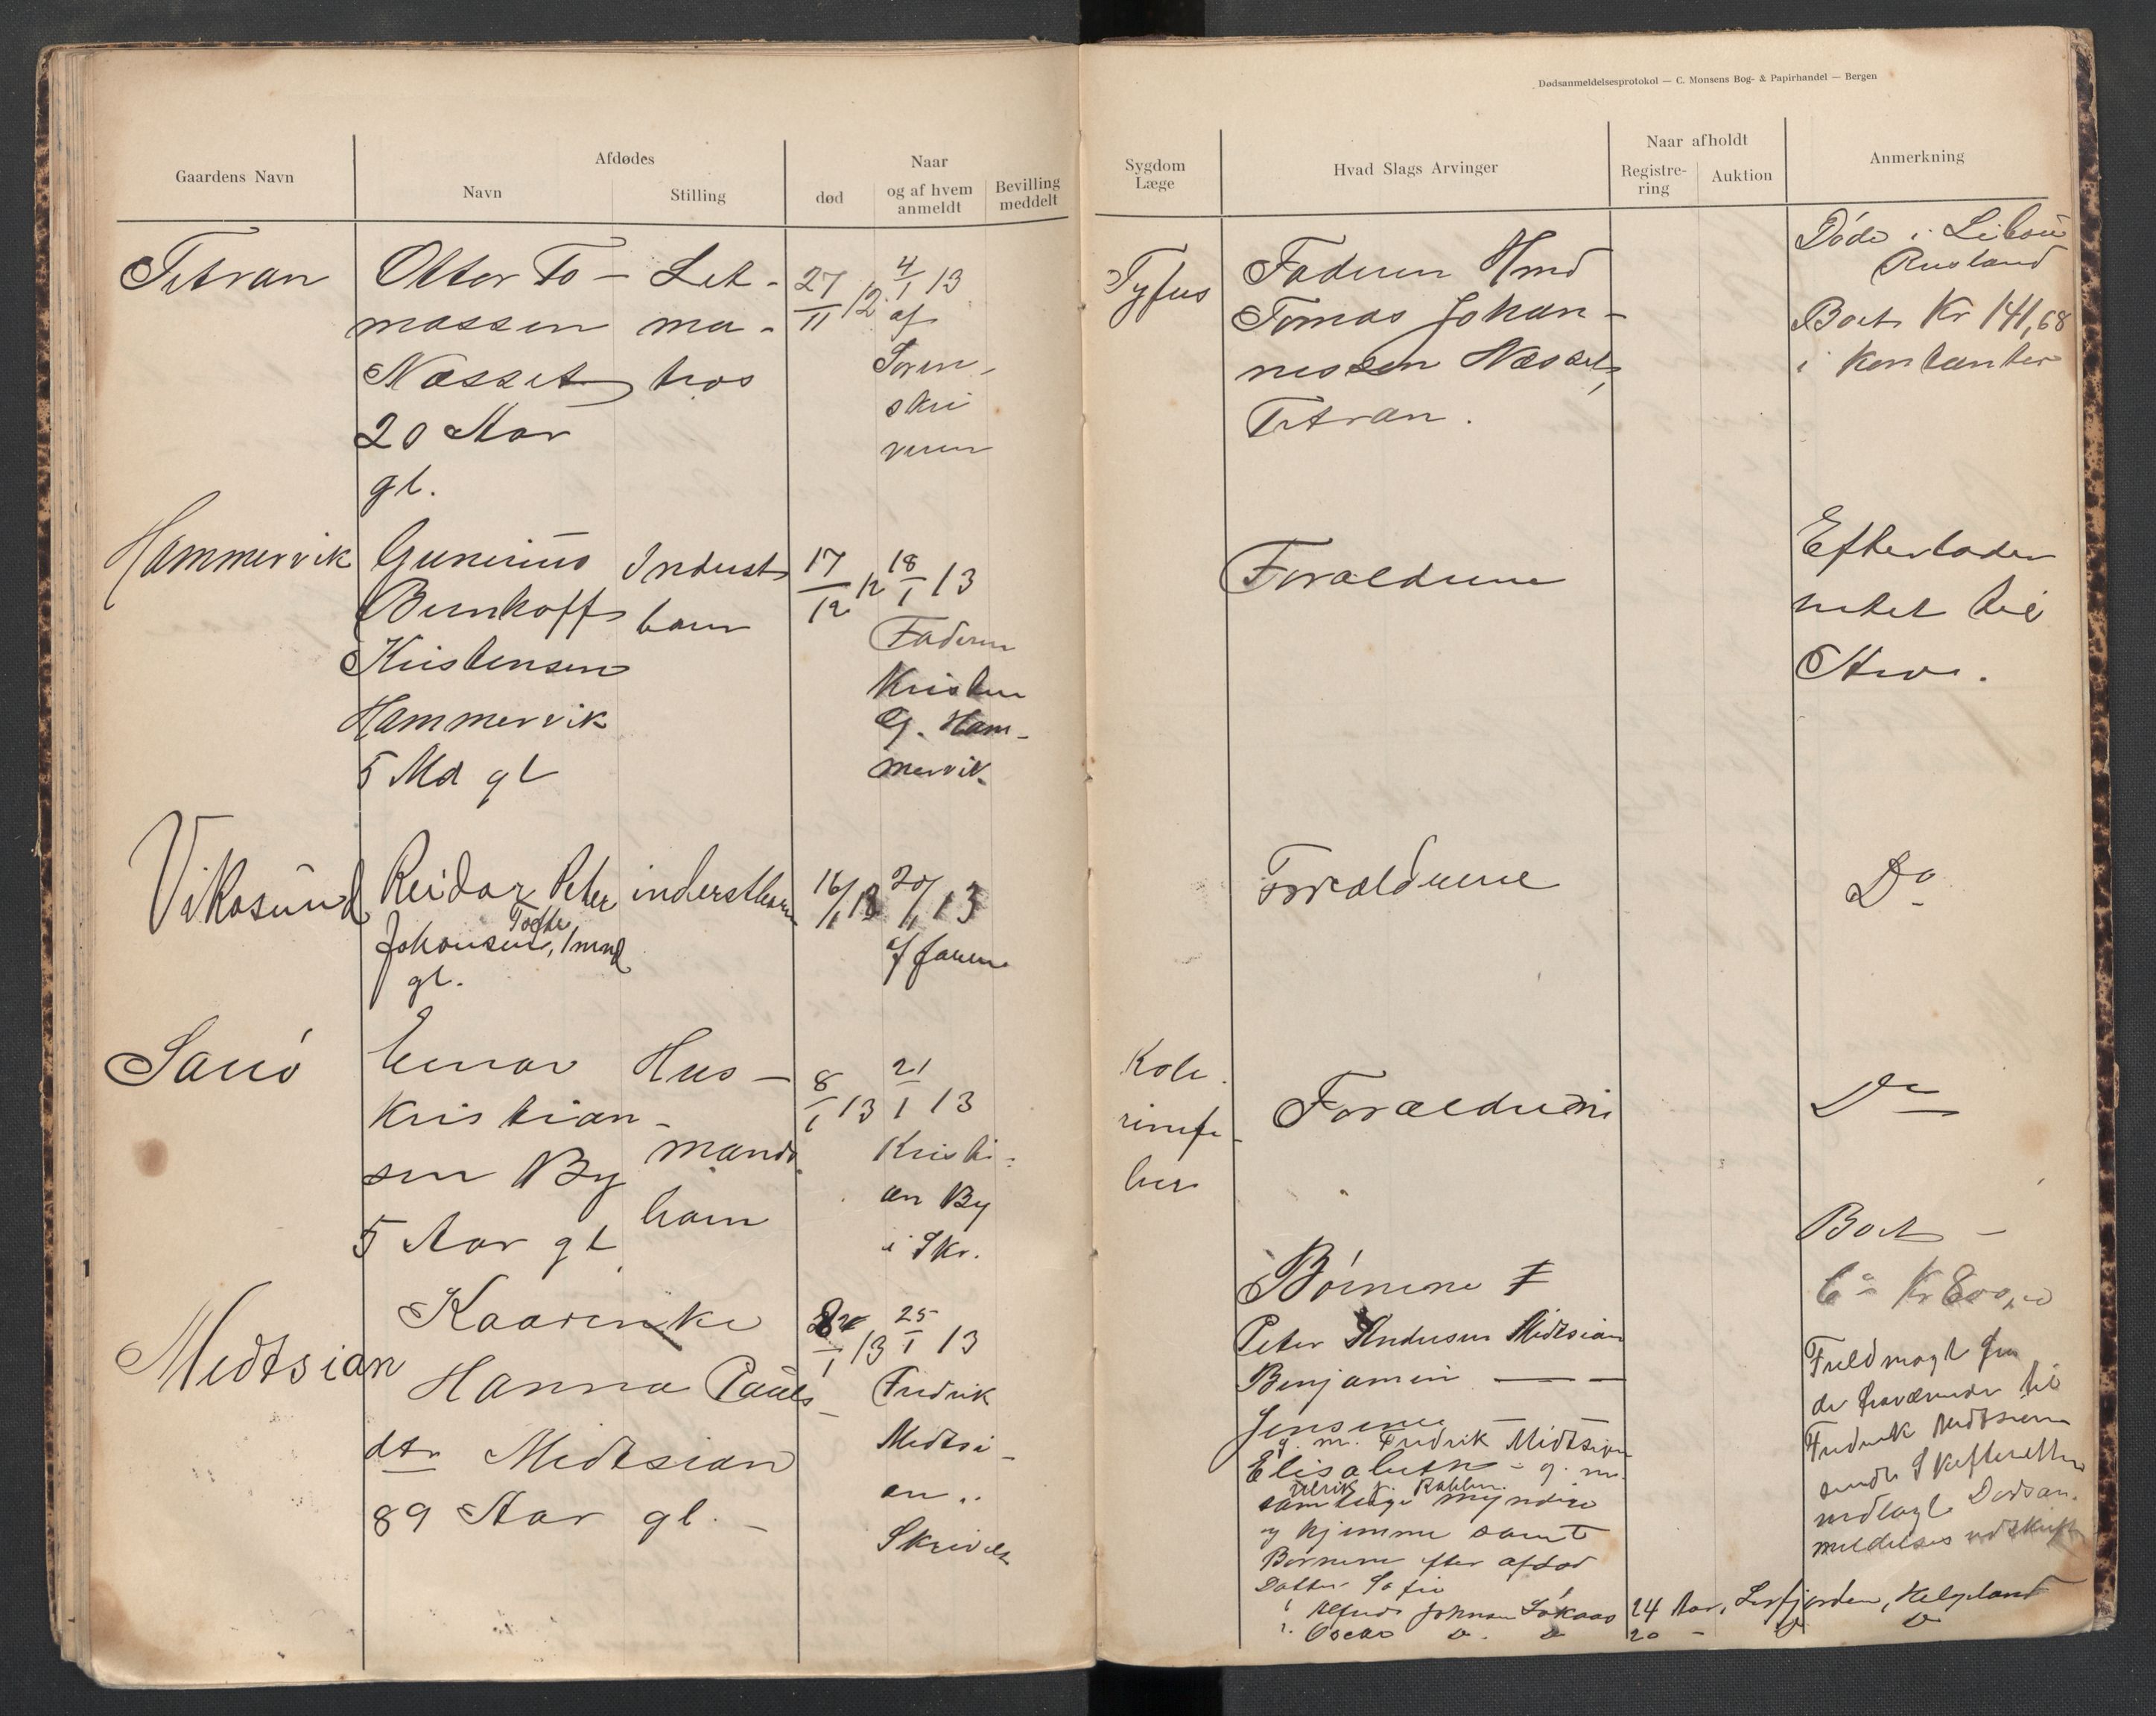 Dødsanmeldelsesprotokol — C. Monsens Bog- & Papirhandel — Bergen
Gaardens Navn
Afdødes
Navn
Stilling
Naar
død
og af hvem
anmeldt
Bevilling
meddelt
Sygdom
Læge
Hvad Slags Arvinger
Naar afholdt
Registre-
ring
Auktion
Anmerkning
Titran
Otter To-
massen
Næsset
20 Aar
gl.
Let-
ma-
tros
27/11 12
4/1 13
af
Soren-
skri
veren
Tyfus
Faderen Hmd
Tomas Johan-
nessen Næsset,
Titran.
Døde i Libau
Rusland
Boets Kr 141,68
i Kontanter
Hammervik
Gunerius
Bernhoff
Kristensen
Hammervik
5 Md gl
Inderst
barn
17/12 12
18/1 13
Faderen
Kristen
G. Ham-
mervik
Forældrene
Efterlader
intet til
Arv.
Vikasund
Reidar Peter
Tofte
Johansen, 1 mnd
gl.
inderstbarn
16/1 13
20/1 13
af faren
Forældrene
Do
Sauø
Einar
Kristian-
sen By
5 Aar gl
Hus-
mands
barn
8/1 13
21/1 13
Kristi-
an By
i Skr.
Kole
rinefe-
ber
Forældrene
Do
Medtsian
Kaarenke
Hanna Pauls-
dtr Midtsian
89 Aar gl.
/1 13
25/1 13
Fredrik
Midtsi-
an
Skrivelse
Børnene
Peter Andersen Midtsian
Benjamin — —
Jensine
g. m. Fredrik Midtsian
Elisabeth - g. m.
Ulrik J. Rabben
samtlige myndige
og hjemme samt
Børnene efter afdød
Datter Sofie
Alfred Johnsen 24 Aar, Leirfjorden, Helgeland
2. Oscar Do Do 20 - Do Do
Boets
Ca Kr 800,00
Fuldmagt fra
de fraværende til
Fredrik Midtsian
sendt Skifteretten
vedlagt Dødsan-
meldelses udskrift